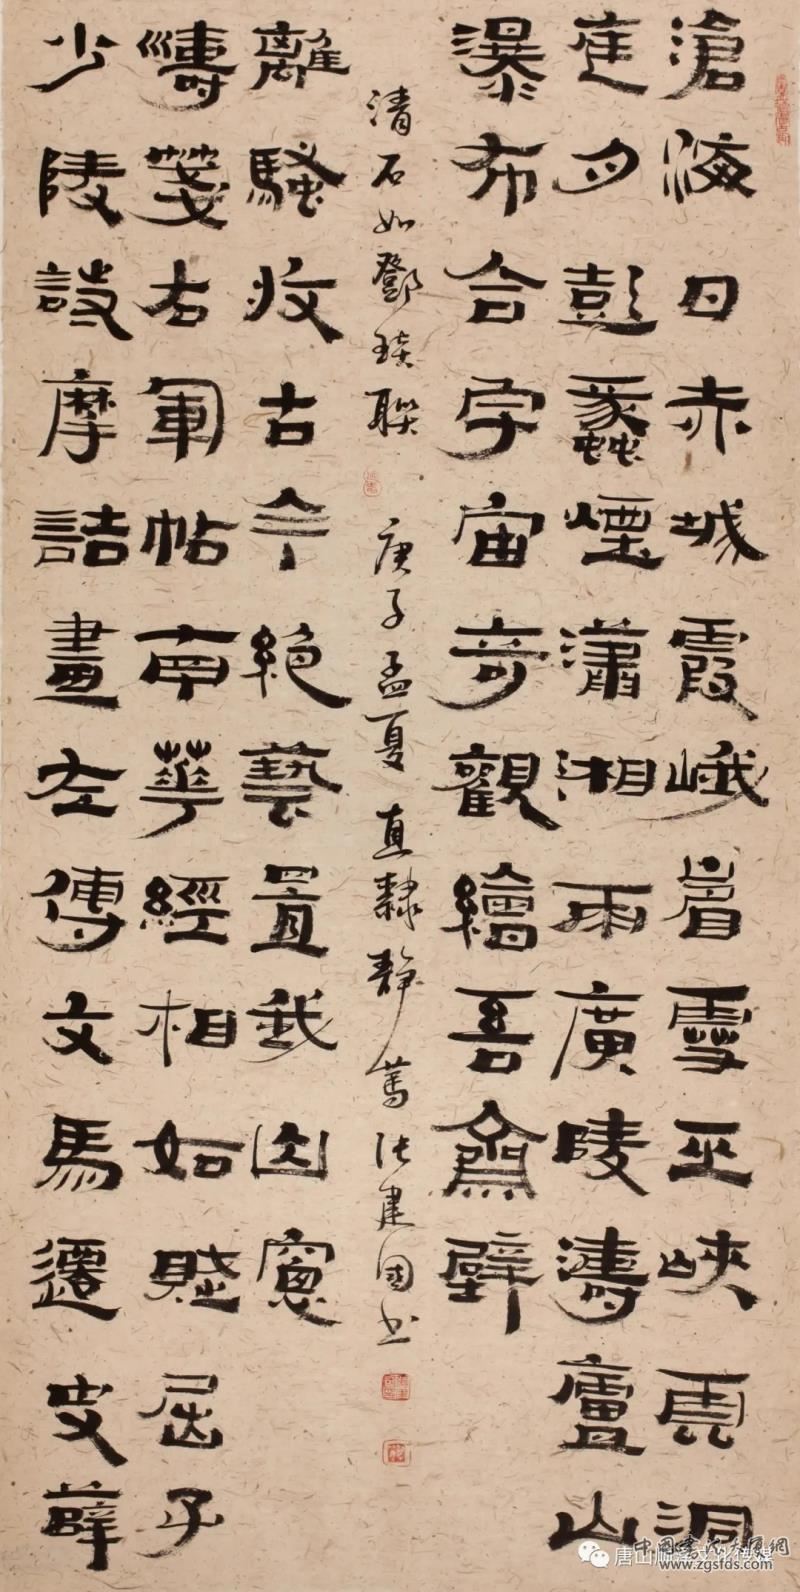 滄海日赤城霞峨眉雪巫峽雲洞
庭月彭蠡煙瀟湘雨廣陵濤廬山
瀑布合宇宙奇觀繪吾齋壁
少陵詩摩詰畫左傳文馬遷史薛
濤箋右軍帖南華經相如賦屈子
離騷收古今絕藝置我山窗
清石如鄧琰聯 庚子孟夏直隸靜篤張建國書
中国书法大展網
唐山文化传媒
www.zgsfds.com